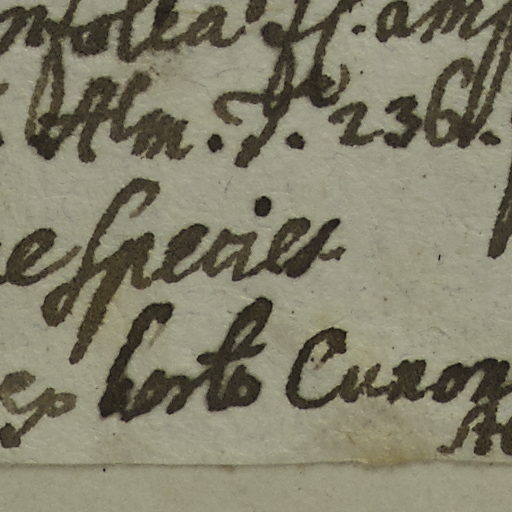 nfolia fl. amp
Alm. P. 236.
e species
ex horto Curon